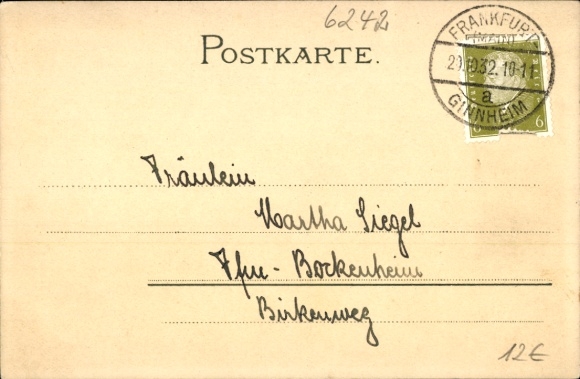 6242
POSTKARTE.
FRANKFURT
(MAIN)
29.10.32.10-11
a
GINNHEIM
6
Fräulein
Martha Siegel
Ffm - Bockenheim
Birkenweg
12€